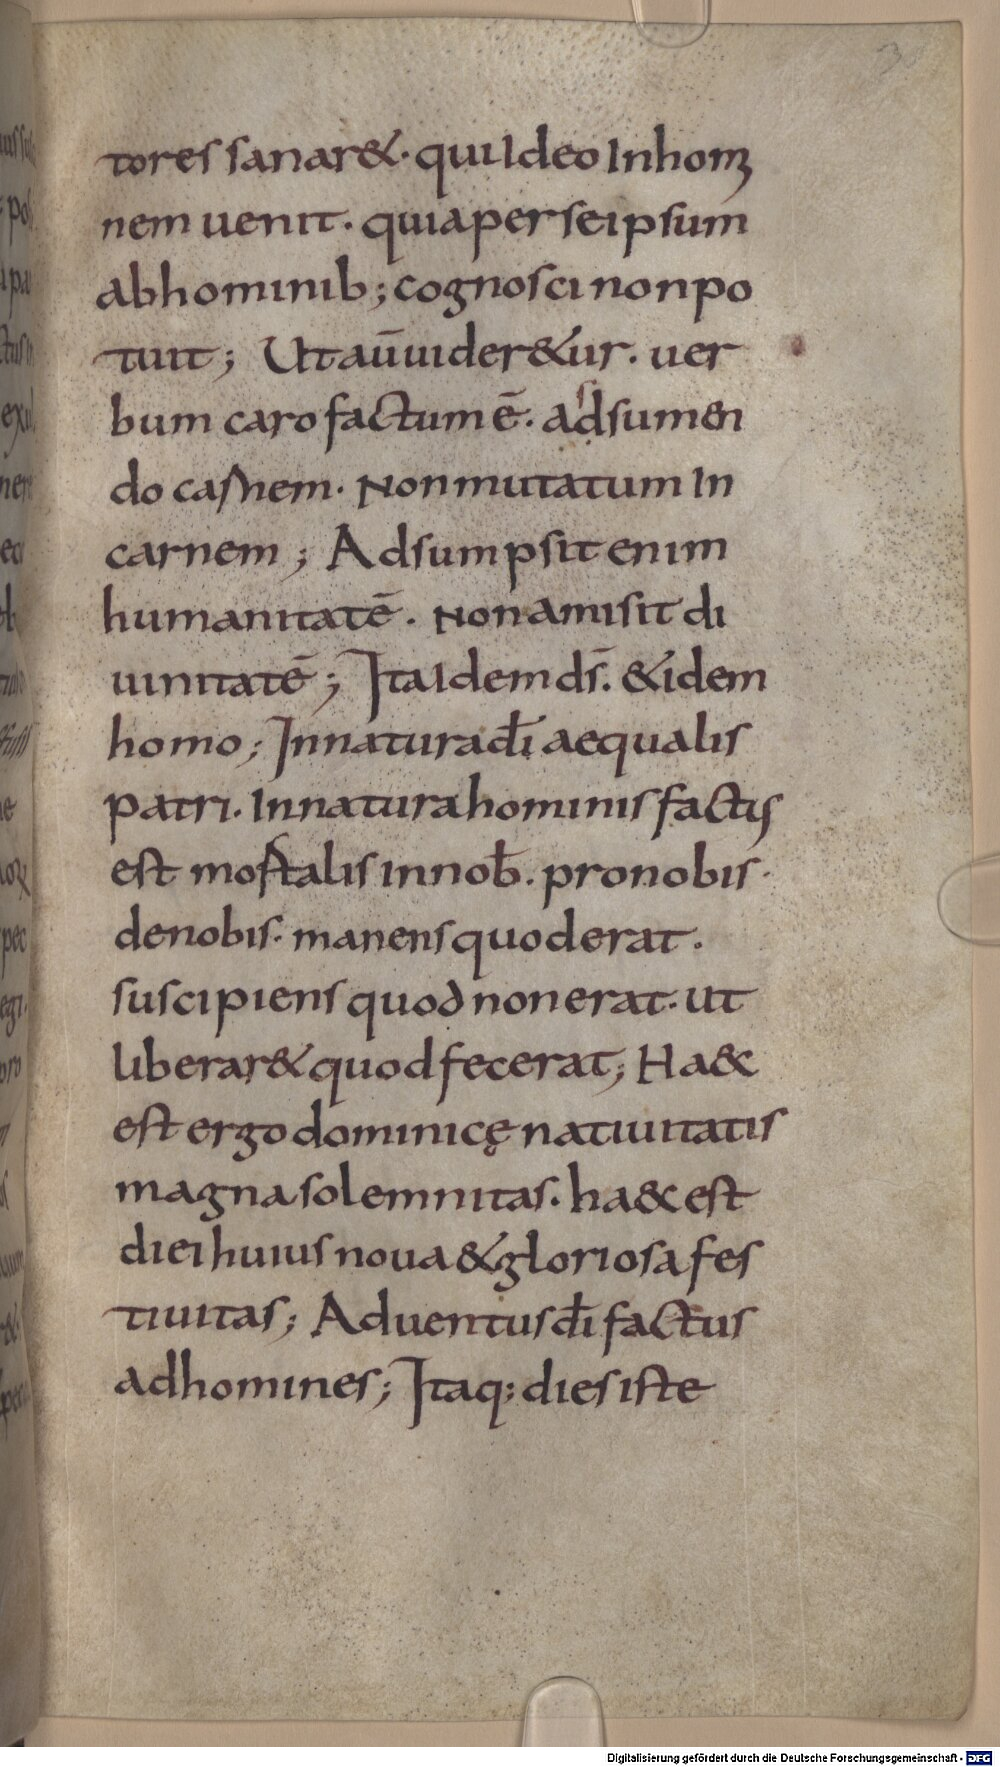 3
tores sanar&. qui Ideo In homi
nem uenit. quia per se ipsum
ab hominib; cognosci non po
tuit; Ut aū uider&ur. uer
bum caro factum ē. adsumen
do carnem. Non mutatum In
carnem; Adsumpsit enim
humanitatē. Non amisit di
uinitatē; Ita Idem ds̄. & idem
homo; In natura dī aequalis
patri. In natura hominis factus
est mortalis in nob̄. pro nobis.
de nobis. manens quod erat.
suscipiens quod non erat. ut
liberar& quod fecerat; Ha&c
est ergo dominicę natiuitatis
magna solemnitas. ha&c est
diei huius noua & gloriosa fes
tiuitas; Aduentus dī factus
ad homines; Itaq; dies iste
Digitalisierung gefördert durch die Deutsche Forschungsgemeinschaft - DFG